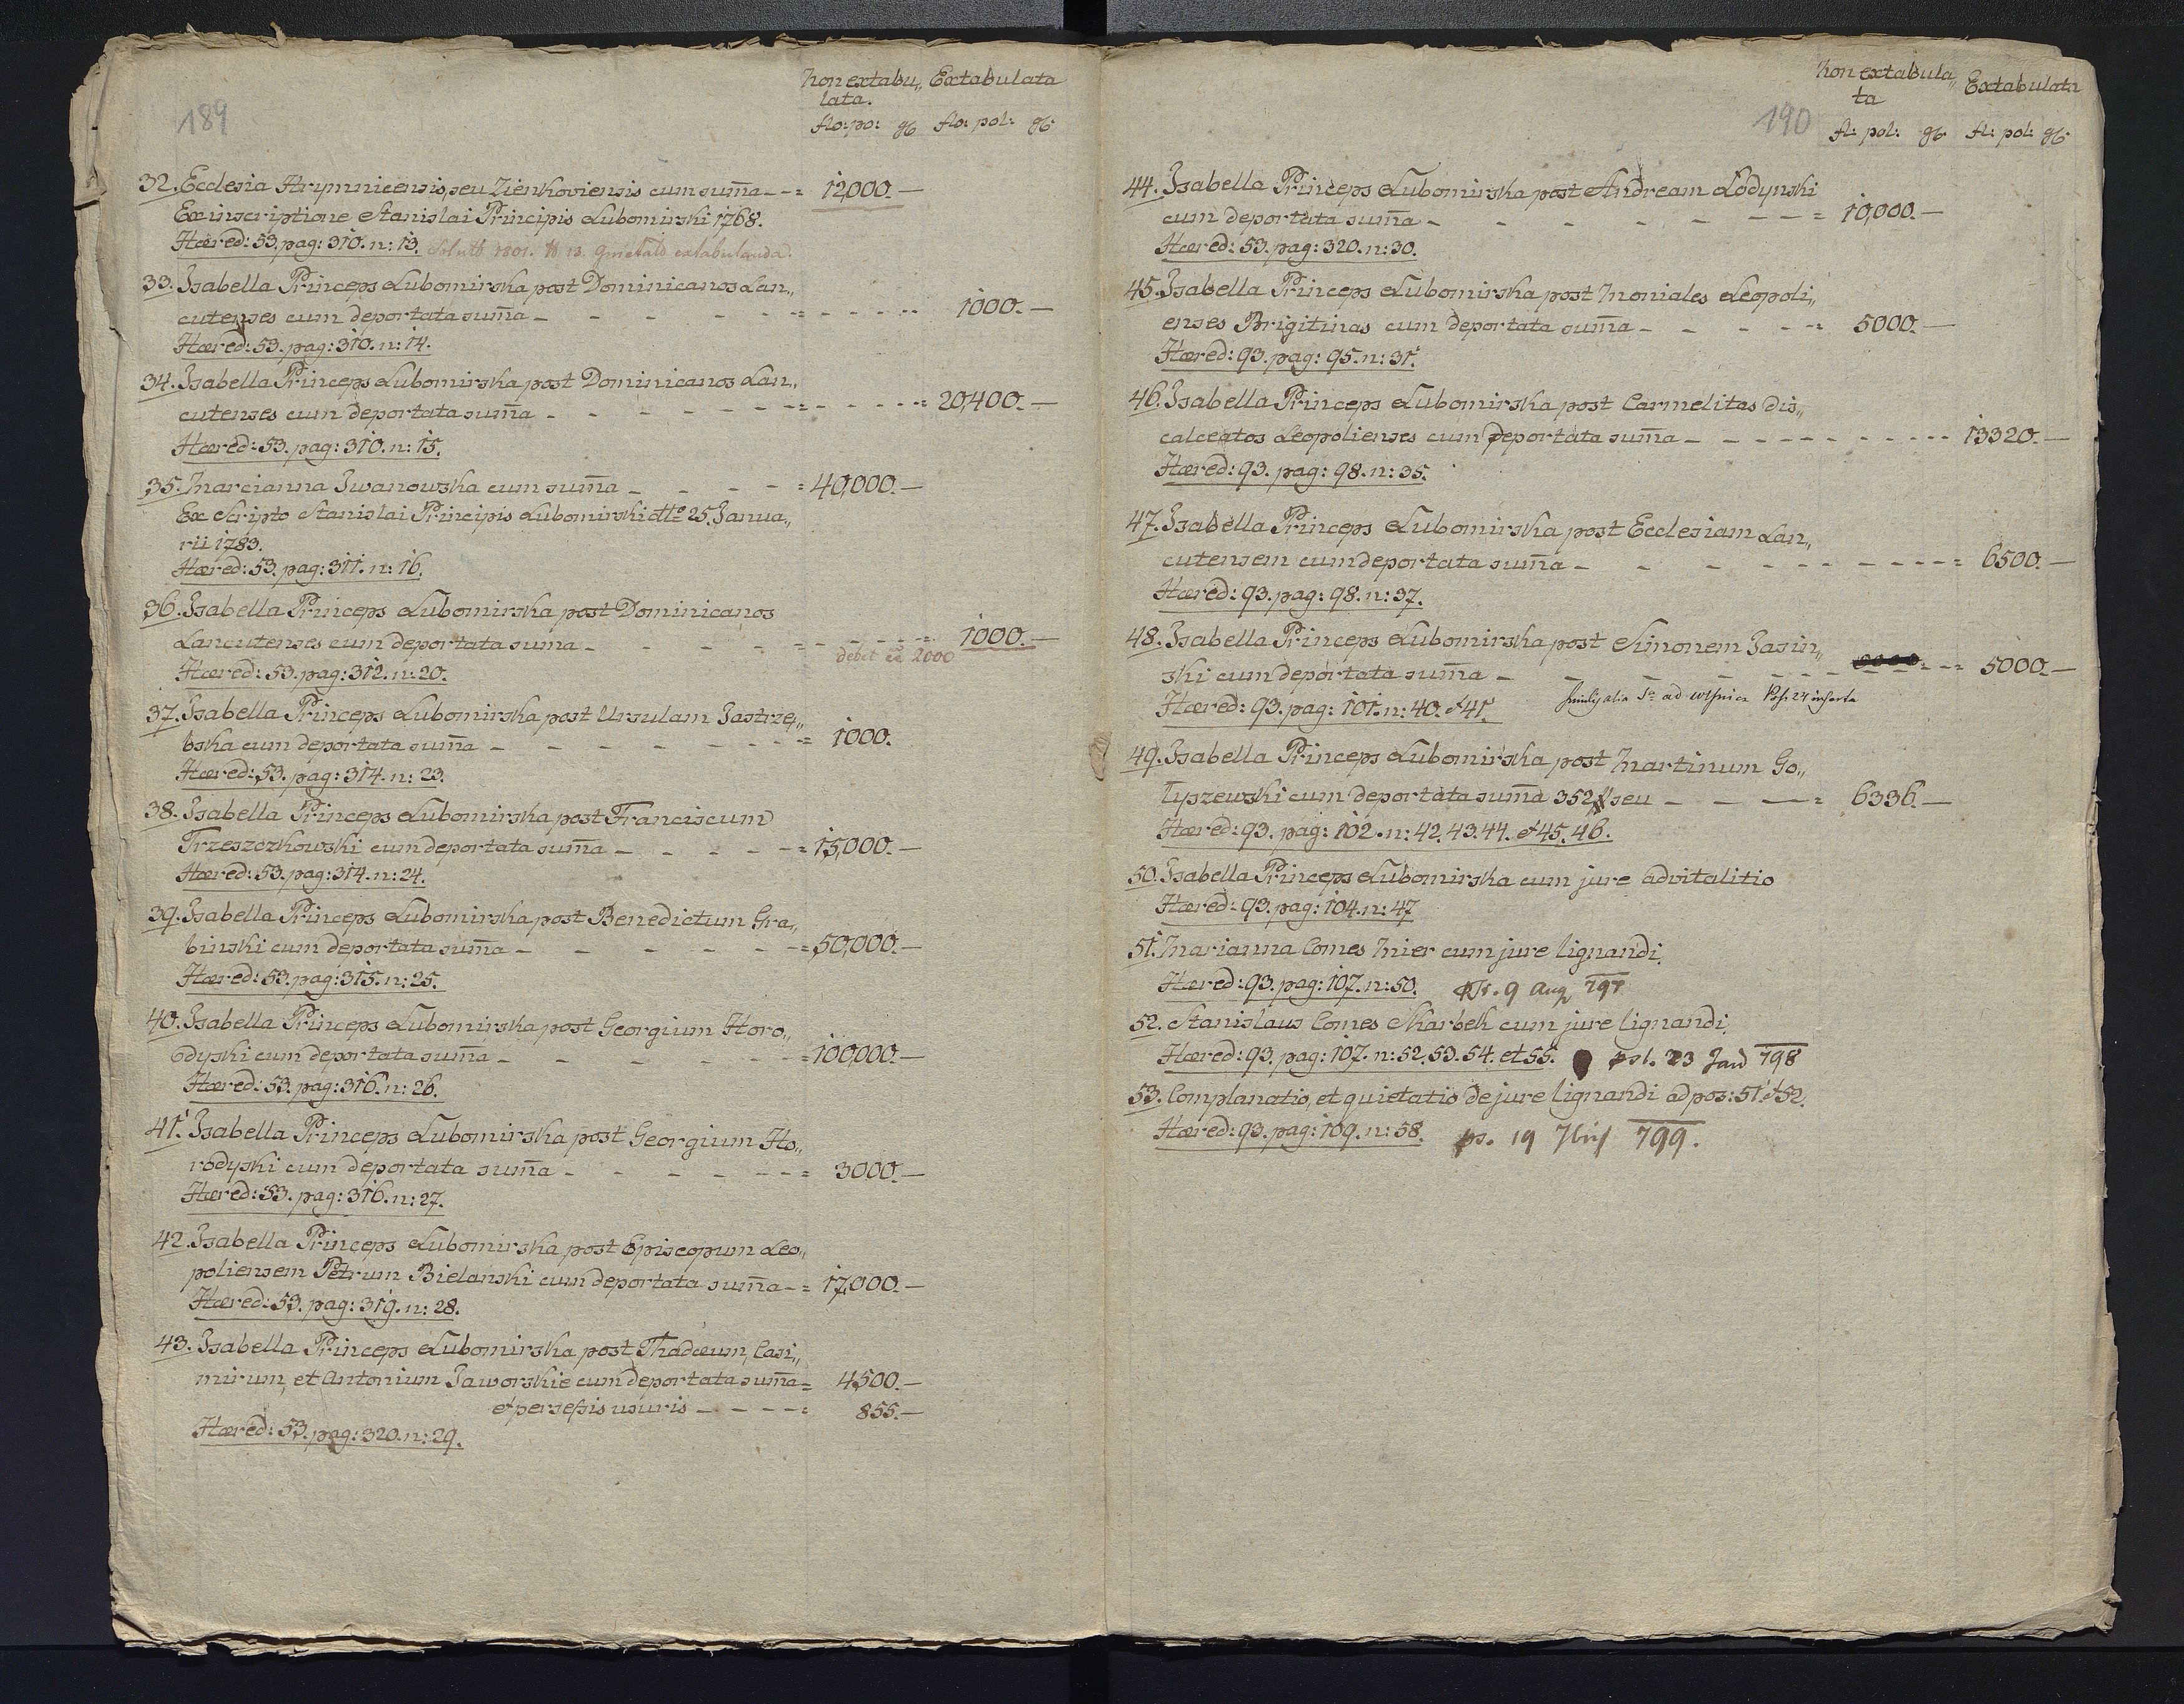 189
Non extabu„ Extabulata
lata.
flo: po: gr flo: pol: gr
32. Ecclesia Hrymnicensis, seu Zienkoviensis cum summa - - = 12,000. —
Ex inscriptione Stanislai Principis Lubomirski 1768.
Hæred: 53. pag: 310. n: 13. 1801. extabulanda.
33. Isabella Princeps Lubomirska post Dominicanos Lan„
cutenses cum deportata summa - - - - - = - - - - 1000. —
Hæred: 53. pag: 310. n: 14.
34. Isabella Princeps Lubomirska post Dominicanos Lan„
cutenses cum deportata summa - - - - - = - - - - = 20,400. —
Hæred: 53. pag: 310. n: 15.
35. Marcianna Iwanowska cum summa - - - - = 40,000. —
Ex Scripto Stanislai Principis Lubomirski dtto 25. Janua„
rii 1783.
Hæred: 53. pag: 311. n: 16.
36. Isabella Princeps Lubomirska post Dominicanos
Lancutenses cum deportata suma - - - - - = - - - - = 1000. —
debet 2000
Hæred: 53. pag: 312. n: 20.
37. Isabella Princeps Lubomirska post Ursulam Jastrzę„
bska cum deportata summa - - - - - - = 1000.
Hæred: 53. pag: 314. n: 23.
38. Isabella Princeps Lubomirska post Franciscum
Trzeszczkowski cum deportata summa - - - - - = 15,000. —
Hæred: 53. pag: 314. n: 24.
39. Isabella Princeps Lubomirska post Benedictum Gra„
binski cum deportata summa - - - - - - = 50,000. —
Hæred: 53. pag: 315. n: 25.
40. Isabella Princeps Lubomirska post Georgium Horo„
dyski cum deportata summa - - - - - - = 100,000. —
Hæred: 53. pag: 316. n: 26.
41. Isabella Princeps Lubomirska post Georgium Ho„
rodyski cum deportata summa - - - - - - = 3000. —
Hæred: 53. pag: 316. n: 27.
42. Isabella Princeps Lubomirska post Episcopum Leo„
poliensem Petrum Bielanski cum deportata summa - = 17,000. —
Hæred: 53. pag: 319. n: 28.
43. Isabella Princeps Lubomirska post Thadæum, Casi„
mirum, et Antonium Jaworskie cum deportata summa = 4,500. —
et persessis usuris - - - - = 855. —
Hæred: 53. pag: 320. n: 29.
190
Non extabula„ Extabulata
ta
fl: pol: gr fl: pol: gr
44. Isabella Princeps Lubomirska post Andream Łodynski
cum deportata summa - - - - - - - = 10,000. —
Hæred: 53. pag: 320. n: 30.
45. Isabella Princeps Lubomirska post Moniales Leopoli„
enses Brigitinas cum deportata summa - - - - - = 5000. —
Hæred: 93. pag: 95. n: 31.
46. Isabella Princeps Lubomirska post Carmelitas dis„
calceatos Leopolienses cum deportata summa - - - - - - - - - 13320. —
Hæred: 93. pag: 98. n: 35.
47. Isabella Princeps Lubomirska post Ecclesiam Lan„
cutensem cum deportata summa - - - - - - - - - - = 6500. —
Hæred: 93. pag: 98. n: 37.
48. Isabella Princeps Lubomirska post Simonem Jasin„
ski cum deportata summa - - - - - - - - = 5000. —
Hæred: 93. pag: 101. n: 40. et 41. alia ad 24 inserta
49. Isabella Princeps Lubomirska post Martinum Go„
łyszewski cum deportata summa 352 # seu - - - = 6336. —
Hæred: 93. pag: 102. n: 42. 43. 44. et 45. 46.
50. Isabella Princeps Lubomirska cum jure advitalitio
Hæred: 93. pag: 104. n: 47
51. Marianna Comes Mier cum jure lignandi.
Hæred: 93. pag: 107. n: 50. 9 Aug 797
52. Stanislaus Comes Skarbek cum jure lignandi.
Hæred: 93. pag: 107. n: 52. 53. 54. et 55. pst. 23 Jan 798
53. Complanatio, et quietatio de jure lignandi ad pos: 51. et 52.
Hæred: 93. pag: 109. n: 58. ps. 19 7bris 799.